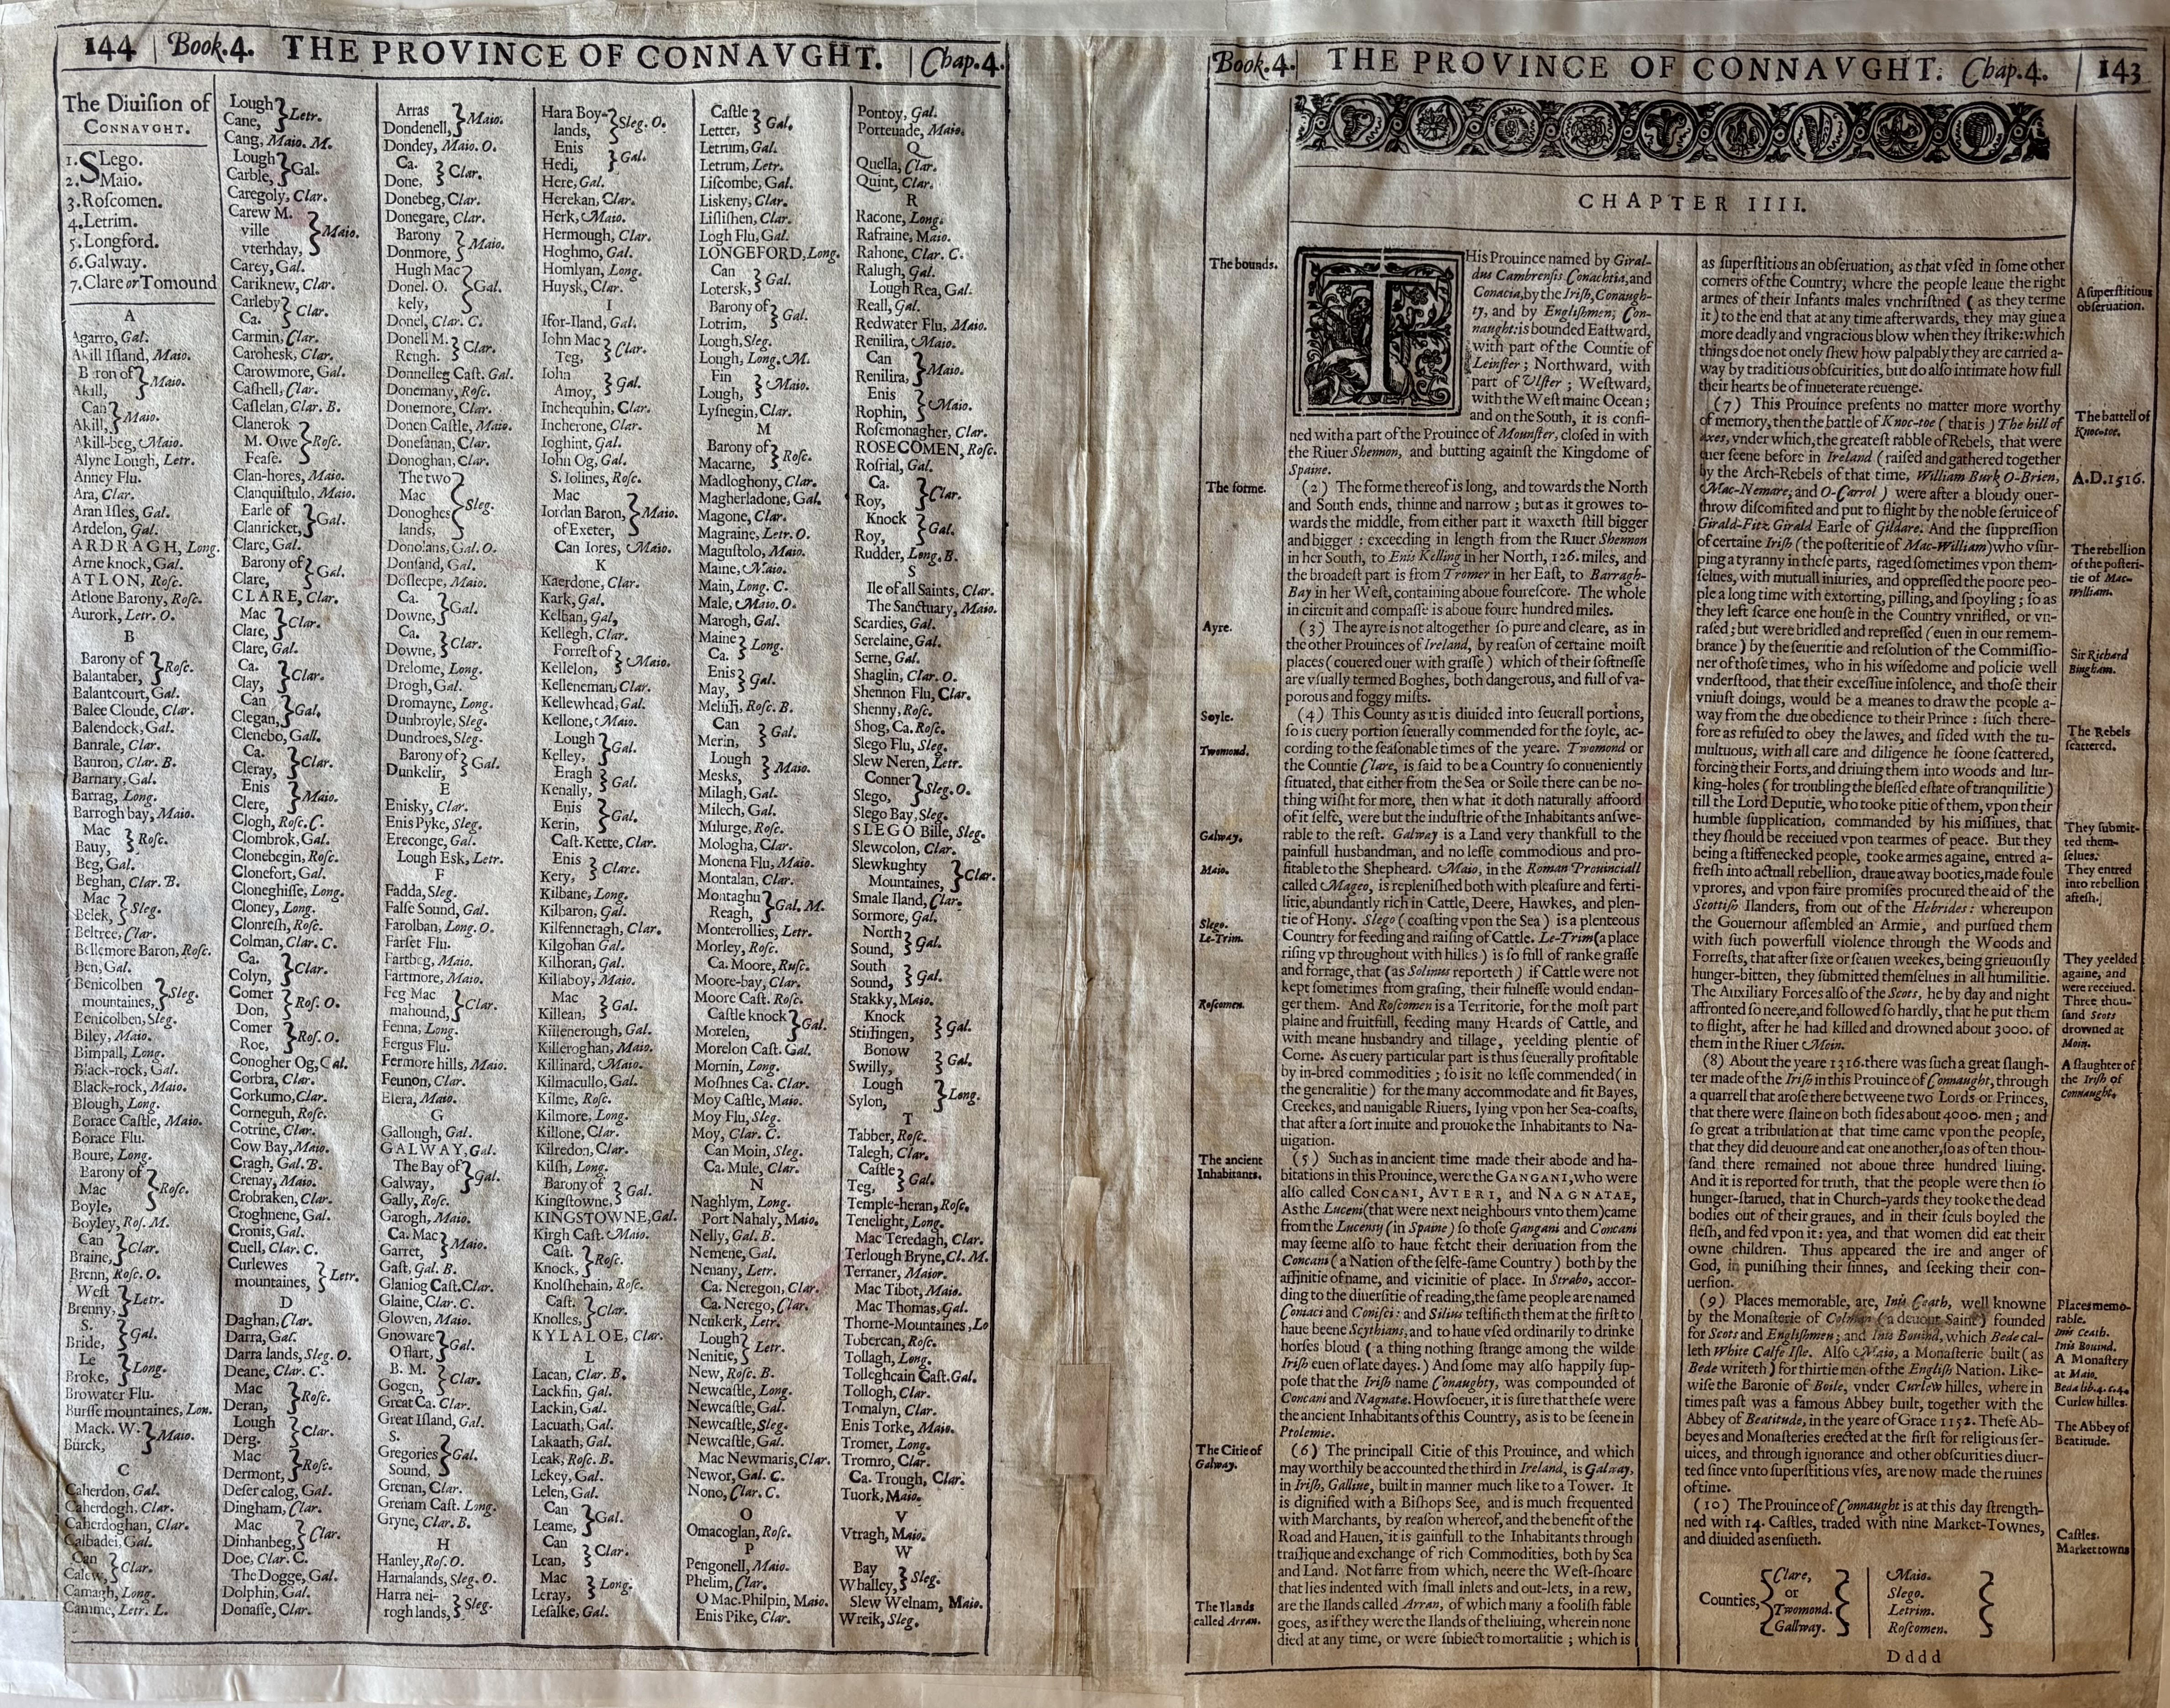 144 | Book.4. THE PROVINCE OF CONNAVGHT. | Chap.4.
The Diuiſion of
CONNAVGHT.
1. SLego.
2. Maio.
3. Roſcomen.
4. Letrim.
5. Longford.
6. Galway.
7. Clare or Tomound
A
Agarro, Gal.
Akill Iſland, Maio.
B ron of
Akill, } Maio.
Can
Akill, } Maio.
Akill-beg, Maio.
Alyne Lough, Letr.
Anney Flu.
Ara, Clar.
Aran Iſles, Gal.
Ardelon, Gal.
ARDRAGH, Long.
Arne knock, Gal.
ATLON, Roſc.
Atlone Barony, Roſc.
Aurork, Letr. O.
B
Barony of
Balantaber, } Roſc.
Balantcourt, Gal.
Balee Cloude, Clar.
Balendock, Gal.
Banrale, Clar.
Banron, Clar. B.
Barnary, Gal.
Barrag, Long.
Barrogh bay, Maio.
Mac
Bauy, } Roſc.
Beg, Gal.
Beghan, Clar. B.
Mac
Belek, } Sleg.
Beltree, Clar.
Bellemore Baron, Roſc.
Ben, Gal.
Benicolben
mountaines, } Sleg.
Benicolben, Sleg.
Biley, Maio.
Bimpall, Long.
Black-rock, Gal.
Black-rock, Maio.
Blough, Long.
Borace Caſtle, Maio.
Borace Flu.
Boure, Long.
Barony of
Mac
Boyle, } Roſc.
Boyley, Roſ. M.
Can
Braine, } Clar.
Brenn, Roſc. O.
Weſt
Brenny, } Letr.
S.
Bride, } Gal.
Le
Broke, } Long.
Browater Flu.
Burſſe mountaines, Lon.
Mack. W.
Burck, } Maio.
C
Caherdon, Gal.
Caherdogh, Clar.
Caherdoghan, Clar.
Calbadei, Gal.
Can
Calew, } Clar.
Camagh, Long.
Camme, Letr. L.
Lough
Cane, } Letr.
Cang, Maio. M.
Lough
Carble, } Gal.
Caregoly, Clar.
Carew M.
ville
vterhday, } Maio.
Carey, Gal.
Cariknew, Clar.
Carleby
Ca. } Clar.
Carmin, Clar.
Carohesk, Clar.
Carowmore, Gal.
Caſhell, Clar.
Caſtelan, Clar. B.
Clanerok
M. Owe
Feaſe. } Roſc.
Clan-hores, Maio.
Clanquiſtulo, Maio.
Earle of
Clanricket, } Gal.
Clare, Gal.
Barony of
Clare, } Gal.
CLARE, Clar.
Mac
Clare, } Clar.
Clare, Gal.
Ca.
Clay, } Clar.
Can
Clegan, } Gal.
Clenebo, Gall.
Ca.
Cleray, } Clar.
Enis
Clere, } Maio.
Clogh, Roſc. C.
Clombrok, Gal.
Clonebegin, Roſc.
Clonefort, Gal.
Cloneghiſſe, Long.
Cloney, Long.
Clonreſh, Roſc.
Colman, Clar. C.
Ca.
Colyn, } Clar.
Comer
Don, } Roſ. O.
Comer
Roe, } Roſ. O.
Conogher Og, Gal.
Corbra, Clar.
Corkumo, Clar.
Corneguh, Roſc.
Cotrine, Clar.
Cow Bay, Maio.
Cragh, Gal. B.
Crenay, Maio.
Crobraken, Clar.
Croghnene, Gal.
Cronis, Gal.
Cuell, Clar. C.
Curlewes
mountaines, } Letr.
D
Daghan, Clar.
Darra, Gal.
Darra lands, Sleg. O.
Deane, Clar. C.
Mac
Deran, } Roſc.
Lough
Derg. } Clar.
Mac
Dermont, } Roſc.
Deſer calog, Gal.
Dingham, Clar.
Mac
Dinhanbeg, } Clar.
Doe, Clar. C.
The Dogge, Gal.
Dolphin, Gal.
Donaſſe, Clar.
Arras
Dondenell, } Maio.
Dondey, Maio. O.
Ca.
Done, } Clar.
Donebeg, Clar.
Donegare, Clar.
Barony
Donmore, } Maio.
Hugh Mac
Donel. O.
kely, } Gal.
Donel, Clar. C.
Donell M.
Rengh. } Clar.
Donnelleg Caſt. Gal.
Donemany, Roſc.
Donemore, Clar.
Donen Caſtle, Maio.
Doneſanan, Clar.
Donoghan, Clar.
The two
Mac
Donoghes
lands, } Sleg.
Donolans, Gal. O.
Donſand, Gal.
Doſleepe, Maio.
Ca.
Downe, } Gal.
Ca.
Downe, } Clar.
Drelome, Long.
Drogh, Gal.
Dromayne, Long.
Dunbroyle, Sleg.
Dundroes, Sleg.
Barony of
Dunkelir, } Gal.
E
Enisky, Clar.
Enis Pyke, Sleg.
Ereconge, Gal.
Lough Esk, Letr.
F
Fadda, Sleg.
Falſe Sound, Gal.
Farolban, Long. O.
Farſet Flu.
Fartbeg, Maio.
Fartmore, Maio.
Feg Mac
mahound, } Clar.
Fenna, Long.
Fergus Flu.
Fermore hills, Maio.
Feunon, Clar.
Elera, Maio.
G
Gallough, Gal.
GALWAY, Gal.
The Bay of
Galway, } Gal.
Gally, Roſc.
Garogh, Maio.
Ca. Mac
Garret, } Maio.
Gaſt, Gal. B.
Glaniog Caſt. Clar.
Glaine, Clar. C.
Glowen, Maio.
Gnoware
Oflart, } Gal.
B. M.
Gogen, } Clar.
Great Ca. Clar.
Great Iſland, Gal.
S.
Gregories
Sound, } Gal.
Grenan, Clar.
Grenam Caſt. Long.
Gryne, Clar. B.
H
Hanley, Roſ. O.
Harnalands, Sleg. O.
Harra nei-
rogh lands, } Sleg.
Hara Boy-
lands, } Sleg. O.
Enis
Hedi, } Gal.
Here, Gal.
Herekan, Clar.
Herk, Maio.
Hermough, Clar.
Hoghmo, Gal.
Homlyan, Long.
Huysk, Clar.
I
Ifor-Iland, Gal.
Iohn Mac
Teg, } Clar.
Iohn
Amoy, } Gal.
Inchequhin, Clar.
Incherone, Clar.
Ioghint, Gal.
Iohn Og, Gal.
S. Iolines, Roſc.
Mac
Iordan Baron,
of Exeter, } Maio.
Can Iores, Maio.
K
Kaerdone, Clar.
Kark, Gal.
Kelban, Gal,
Kellegh, Clar.
Forreſt of
Kellelon, } Maio.
Kelleneman, Clar.
Kellewhead, Gal.
Kellone, Maio.
Lough
Kelley, } Gal.
Eragh
Kenally, } Gal.
Enis
Kerin, } Gal.
Caſt. Kette, Clar.
Enis
Kery, } Clare.
Kilbane, Long.
Kilbaron, Gal.
Kilfenneragh, Clar.
Kilgohan Gal.
Kilhoran, Gal.
Killaboy, Maio.
Mac
Killean, } Gal.
Killenerough, Gal.
Killeroghan, Maio.
Killinard, Maio.
Kilmacullo, Gal.
Kilme, Roſc.
Kilmore, Long.
Killone, Clar.
Kilredon, Clar.
Kilſh, Long.
Barony of
Kingſtowne, } Gal.
KINGSTOWNE, Gal.
Kirgh Caſt. Maio.
Caſt.
Knock, } Roſc.
Knolſhehain, Roſc.
Caſt.
Knolles, } Clar.
KYLALOE, Clar.
L
Lacan, Clar. B.
Lackfin, Gal.
Lackin, Gal.
Lacuath, Gal.
Lakaath, Gal.
Leak, Roſc. B.
Lekey, Gal.
Lelen, Gal.
Can
Leame, } Gal.
Can
Lean, } Clar.
Mac
Leray, } Long.
Leſalke, Gal.
Caſtle
Letter, } Gal.
Letrum, Gal.
Letrum, Letr.
Liſcombe, Gal.
Liskeny, Clar.
Liſliſhen, Clar.
Logh Flu, Gal.
LONGEFORD, Long.
Can
Lotersk, } Gal.
Barony of
Lotrim, } Gal.
Lough, Sleg.
Lough, Long. M.
Fin
Lough, } Maio.
Lyſnegin, Clar.
M
Barony of
Macarne, } Roſc.
Madloghony, Clar.
Magherladone, Gal.
Magone, Clar.
Magraine, Letr. O.
Maguſtolo, Maio.
Maine, Maio.
Main, Long. C.
Male, Maio. O.
Marogh, Gal.
Maine
Ca. } Long.
Enis
May, } Gal.
Meliſſi, Roſc. B.
Can
Merin, } Gal.
Lough
Mesks, } Maio.
Milagh, Gal.
Milech, Gal.
Milurge, Roſc.
Mologha, Clar.
Monena Flu, Maio.
Montalan, Clar.
Montaghu
Reagh, } Gal. M.
Monterollies, Letr.
Morley, Roſc.
Ca. Moore, Ruſc.
Moore-bay, Clar.
Moore Caſt. Roſc.
Caſtle knock
Morelen, } Gal.
Morelon Caſt. Gal.
Mornin, Long.
Moſhnes Ca. Clar.
Moy Caſtle, Maio.
Moy Flu, Sleg.
Moy, Clar. C.
Can Moin, Sleg.
Ca. Mule, Clar.
N
Naghlym, Long.
Port Nahaly, Maio.
Nelly, Gal. B.
Nemene, Gal.
Nenany, Letr.
Ca. Neregon, Clar.
Ca. Nerego, Clar.
Neukerk, Letr.
Lough
Nenitie, } Letr.
New, Roſc. B.
Newcaſtle, Long.
Newcaſtle, Gal.
Newcaſtle, Sleg.
Newcaſtle, Gal.
Mac Newmaris, Clar.
Newor, Gal. C.
Nono, Clar. C.
O
Omacoglan, Roſc.
P
Pengonell, Maio.
Phelim, Clar.
O Mac. Philpin, Maio.
Enis Pike, Clar.
Pontoy, Gal.
Porteuade, Maio.
Q
Quella, Clar.
Quint, Clar.
R
Racone, Long.
Rafraine, Maio.
Rahone, Clar. C.
Ralugh, Gal.
Lough Rea, Gal.
Reall, Gal.
Redwater Flu, Maio.
Renilira, Maio.
Can
Renilira, } Maio.
Enis
Rophin, } Maio.
Roſmonagher, Clar.
ROSECOMEN, Roſc.
Roſrial, Gal.
Ca.
Roy, } Clar.
Knock
Roy, } Gal.
Rudder, Long. B.
S
Ile of all Saints, Clar.
The Sanctuary, Maio.
Scardies, Gal.
Serelaine, Gal.
Serne, Gal.
Shaglin, Clar. O.
Shennon Flu, Clar.
Shenny, Roſc.
Shog, Ca. Roſc.
Slego Flu, Sleg.
Slew Neren, Letr.
Conner
Slego, } Sleg. O.
Slego Bay, Sleg.
SLEGO Bille, Sleg.
Slewcolon, Clar.
Slewkughty
Mountaines, } Clar.
Smale Iland, Clar.
Sormore, Gal.
North
Sound, } Gal.
South
Sound, } Gal.
Stakky, Maio.
Knock
Stiffingen, } Gal.
Bonow
Swilly, } Gal.
Lough
Sylon, } Long.
T
Tabber, Roſc.
Talegh, Clar.
Caſtle
Teg, } Gal.
Temple-heran, Roſc.
Tenelight, Long.
Mac Teredagh, Clar.
Terlough Bryne, Cl. M.
Terraner, Maior.
Mac Tibot, Maio.
Mac Thomas, Gal.
Thorne-Mountaines, Lo
Tobercan, Roſc.
Tollagh, Long.
Tolleghcain Caſt. Gal.
Tollogh, Clar.
Tomalyn, Clar.
Enis Torke, Maio.
Tromer, Long.
Tromro, Clar.
Ca. Trough, Clar.
Tuork, Maio.
V
Vtragh, Maio.
W
Bay
Whalley, } Sleg.
Slew Welnam, Maio.
Wreik, Sleg.
Book.4. | THE PROVINCE OF CONNAVGHT. Chap.4. | 143
CHAPTER IIII.
The bounds.
THis Prouince named by Giral-
dus Cambrenſis Conachtia, and
Conacia, by the Iriſh, Conaugh-
ty, and by Engliſhmen, Con-
naught: is bounded Eaſtward,
with part of the Countie of
Leinſter; Northward, with
part of Vlſter; Weſtward,
with the Weſt maine Ocean;
and on the South, it is confi-
ned with a part of the Prouince of Mounſter, cloſed in with
the Riuer Shennon, and butting againſt the Kingdome of
Spaine.
The forme.
(2) The forme thereof is long, and towards the North
and South ends, thinne and narrow; but as it growes to-
wards the middle, from either part it waxeth ſtill bigger
and bigger: exceeding in length from the Riuer Shennon
in her South, to Enis Kelling in her North, 126. miles, and
the broadeſt part is from Tromer in her Eaſt, to Barragh-
Bay in her Weſt, containing aboue foureſcore. The whole
in circuit and compaſſe is aboue foure hundred miles.
Ayre.
(3) The ayre is not altogether ſo pure and cleare, as in
the other Prouinces of Ireland, by reaſon of certaine moiſt
places (couered ouer with graſſe) which of their ſoftneſſe
are vſually termed Boghes, both dangerous, and full of va-
porous and foggy miſts.
Soyle.
(4) This County as it is diuided into ſeuerall portions,
ſo is euery portion ſeuerally commended for the ſoyle, ac-
cording to the ſeaſonable times of the yeare. Twomond or
Twomond.
the Countie Clare, is ſaid to be a Country ſo conueniently
ſituated, that either from the Sea or Soile there can be no-
thing wiſht for more, then what it doth naturally affoord
of it ſelfe, were but the induſtrie of the Inhabitants anſwe-
Galway.
rable to the reſt. Galway is a Land very thankfull to the
painfull husbandman, and no leſſe commodious and pro-
Maio.
fitable to the Shepheard. Maio, in the Roman Prouinciall
called Mageo, is repleniſhed both with pleaſure and ferti-
litie, abundantly rich in Cattle, Deere, Hawkes, and plen-
Slego.
tie of Hony. Slego (coaſting vpon the Sea) is a plenteous
Le-Trim.
Country for feeding and raiſing of Cattle. Le-Trim (a place
riſing vp throughout with hilles) is ſo full of ranke graſſe
and forrage, that (as Solinus reporteth) if Cattle were not
kept ſometimes from graſing, their fulneſſe would endan-
Roſcomen.
ger them. And Roſcomen is a Territorie, for the moſt part
plaine and fruitfull, feeding many Heards of Cattle, and
with meane husbandry and tillage, yeelding plentie of
Corne. As euery particular part is thus ſeuerally profitable
by in-bred commodities; ſo is it no leſſe commended (in
the generalitie) for the many accommodate and fit Bayes,
Creekes, and nauigable Riuers, lying vpon her Sea-coaſts,
that after a ſort inuite and prouoke the Inhabitants to Na-
uigation.
The ancient
Inhabitants.
(5) Such as in ancient time made their abode and ha-
bitations in this Prouince, were the GANGANI, who were
alſo called CONCANI, AVTERI, and NAGNATAE,
As the Luceni (that were next neighbours vnto them) came
from the Lucenſy (in Spaine) ſo thoſe Gangani and Concani
may ſeeme alſo to haue fetcht their deriuation from the
Concani (a Nation of the ſelfe-ſame Country) both by the
affinitie of name, and vicinitie of place. In Strabo, accor-
ding to the diuerſitie of reading, the ſame people are named
Coniaci and Coniſci: and Silius teſtifieth them at the firſt to
haue beene Scythians, and to haue vſed ordinarily to drinke
horſes bloud (a thing nothing ſtrange among the wilde
Iriſh euen of late dayes.) And ſome may alſo happily ſup-
poſe that the Iriſh name Conaughty, was compounded of
Concani and Nagnate. Howſoeuer, it is ſure that theſe were
the ancient Inhabitants of this Country, as is to be ſeene in
Ptolemie.
The Citie of
Galway.
(6) The principall Citie of this Prouince, and which
may worthily be accounted the third in Ireland, is Galway,
in Iriſh, Galliue, built in manner much like to a Tower. It
is dignified with a Biſhops See, and is much frequented
with Marchants, by reaſon whereof, and the benefit of the
Road and Hauen, it is gainfull to the Inhabitants through
traffique and exchange of rich Commodities, both by Sea
and Land. Not farre from which, neere the Weſt-ſhoare
that lies indented with ſmall inlets and out-lets, in a rew,
The Ilands
called Arran.
are the Ilands called Arran, of which many a fooliſh fable
goes, as if they were the Ilands of the liuing, wherein none
died at any time, or were ſubiect to mortalitie; which is
as ſuperſtitious an obſeruation, as that vſed in ſome other
corners of the Country, where the people leaue the right
A ſuperſtitious
obſeruation.
armes of their Infants males vnchriſtned (as they terme
it) to the end that at any time afterwards, they may giue a
more deadly and vngracious blow when they ſtrike: which
things doe not onely ſhew how palpably they are carried a-
way by traditious obſcurities, but do alſo intimate how full
their hearts be of inueterate reuenge.
The battell of
Knoc-toe.
(7) This Prouince preſents no matter more worthy
of memory, then the battle of Knoc-toe (that is) The hill of
axes, vnder which, the greateſt rabble of Rebels, that were
euer ſeene before in Ireland (raiſed and gathered together
A.D. 1516.
by the Arch-Rebels of that time, William Burk O-Brien,
Mac-Nemare, and O-Carrol) were after a bloudy ouer-
throw diſcomfited and put to flight by the noble ſeruice of
Girald-Fitz Girald Earle of Gildare. And the ſuppreſſion
The rebellion
of the poſteri-
tie of Mac-
William.
of certaine Iriſh (the poſteritie of Mac-William) who vſur-
ping a tyranny in theſe parts, raged ſometimes vpon them-
ſelues, with mutuall iniuries, and oppreſſed the poore peo-
ple a long time with extorting, pilling, and ſpoyling; ſo as
they left ſcarce one houſe in the Country vnrifled, or vn-
raſed; but were bridled and repreſſed (euen in our remem-
Sir Richard
Bingham.
brance) by the ſeueritie and reſolution of the Commiſſio-
ner of thoſe times, who in his wiſedome and policie well
vnderſtood, that their exceſſiue inſolence, and thoſe their
vniuſt doings, would be a meanes to draw the people a-
way from the due obedience to their Prince: ſuch there-
The Rebels
ſcattered.
fore as refuſed to obey the lawes, and ſided with the tu-
multuous, with all care and diligence he ſoone ſcattered,
forcing their Forts, and driuing them into woods and lur-
king-holes (for troubling the bleſſed eſtate of tranquilitie)
till the Lord Deputie, who tooke pitie of them, vpon their
humble ſupplication, commanded by his miſſiues, that
They ſubmit-
ted them-
ſelues.
they ſhould be receiued vpon tearmes of peace. But they
being a ſtiffenecked people, tooke armes againe, entred a-
They entred
into rebellion
afreſh.
freſh into actuall rebellion, draue away booties, made foule
vprores, and vpon faire promiſes procured the aid of the
Scottiſh Ilanders, from out of the Hebrides: whereupon
the Gouernour aſſembled an Armie, and purſued them
with ſuch powerfull violence through the Woods and
Forreſts, that after ſixe or ſeauen weekes, being grieuouſly
They yeelded
againe, and
were receiued.
hunger-bitten, they ſubmitted themſelues in all humilitie.
The Auxiliary Forces alſo of the Scots, he by day and night
Three thou-
ſand Scots
drowned at
Moin.
affronted ſo neere, and followed ſo hardly, that he put them
to flight, after he had killed and drowned about 3000. of
them in the Riuer Moin.
A ſlaughter of
the Iriſh of
Connaught.
(8) About the yeare 1316. there was ſuch a great ſlaugh-
ter made of the Iriſh in this Prouince of Connaught, through
a quarrell that aroſe there betweene two Lords or Princes,
that there were ſlaine on both ſides about 4000. men; and
ſo great a tribulation at that time came vpon the people,
that they did deuoure and eat one another, ſo as of ten thou-
ſand there remained not aboue three hundred liuing.
And it is reported for truth, that the people were then ſo
hunger-ſtarued, that in Church-yards they tooke the dead
bodies out of their graues, and in their ſculs boyled the
fleſh, and fed vpon it: yea, and that women did eat their
owne children. Thus appeared the ire and anger of
God, in puniſhing their ſinnes, and ſeeking their con-
uerſion.
Places memo-
rable.
Inis Ceath.
Inis Bouind.
(9) Places memorable, are, Inis Ceath, well knowne
by the Monaſterie of Colman (a deuout Saint) founded
for Scots and Engliſhmen; and Inis Bouind, which Bede cal-
A Monaſtery
at Maio.
Beda lib.4. c.4.
leth White Calfe Iſle. Alſo Maio, a Monaſterie built (as
Bede writeth) for thirtie men of the Engliſh Nation. Like-
Curlew hilles.
wiſe the Baronie of Boile, vnder Curlew hilles, where in
times paſt was a famous Abbey built, together with the
The Abbey of
Beatitude.
Abbey of Beatitude, in the yeare of Grace 1152. Theſe Ab-
beyes and Monaſteries erected at the firſt for religious ſer-
uices, and through ignorance and other obſcurities diuer-
ted ſince vnto ſuperſtitious vſes, are now made the ruines
of time.
(10) The Prouince of Connaught is at this day ſtrength-
Castles.
Market towns
ned with 14. Caſtles, traded with nine Market-Townes,
and diuided as enſueth.
Counties, { Clare, or Twomond. Gallway. } | Maio. Slego. Letrim. Roſcomen. }
Dddd